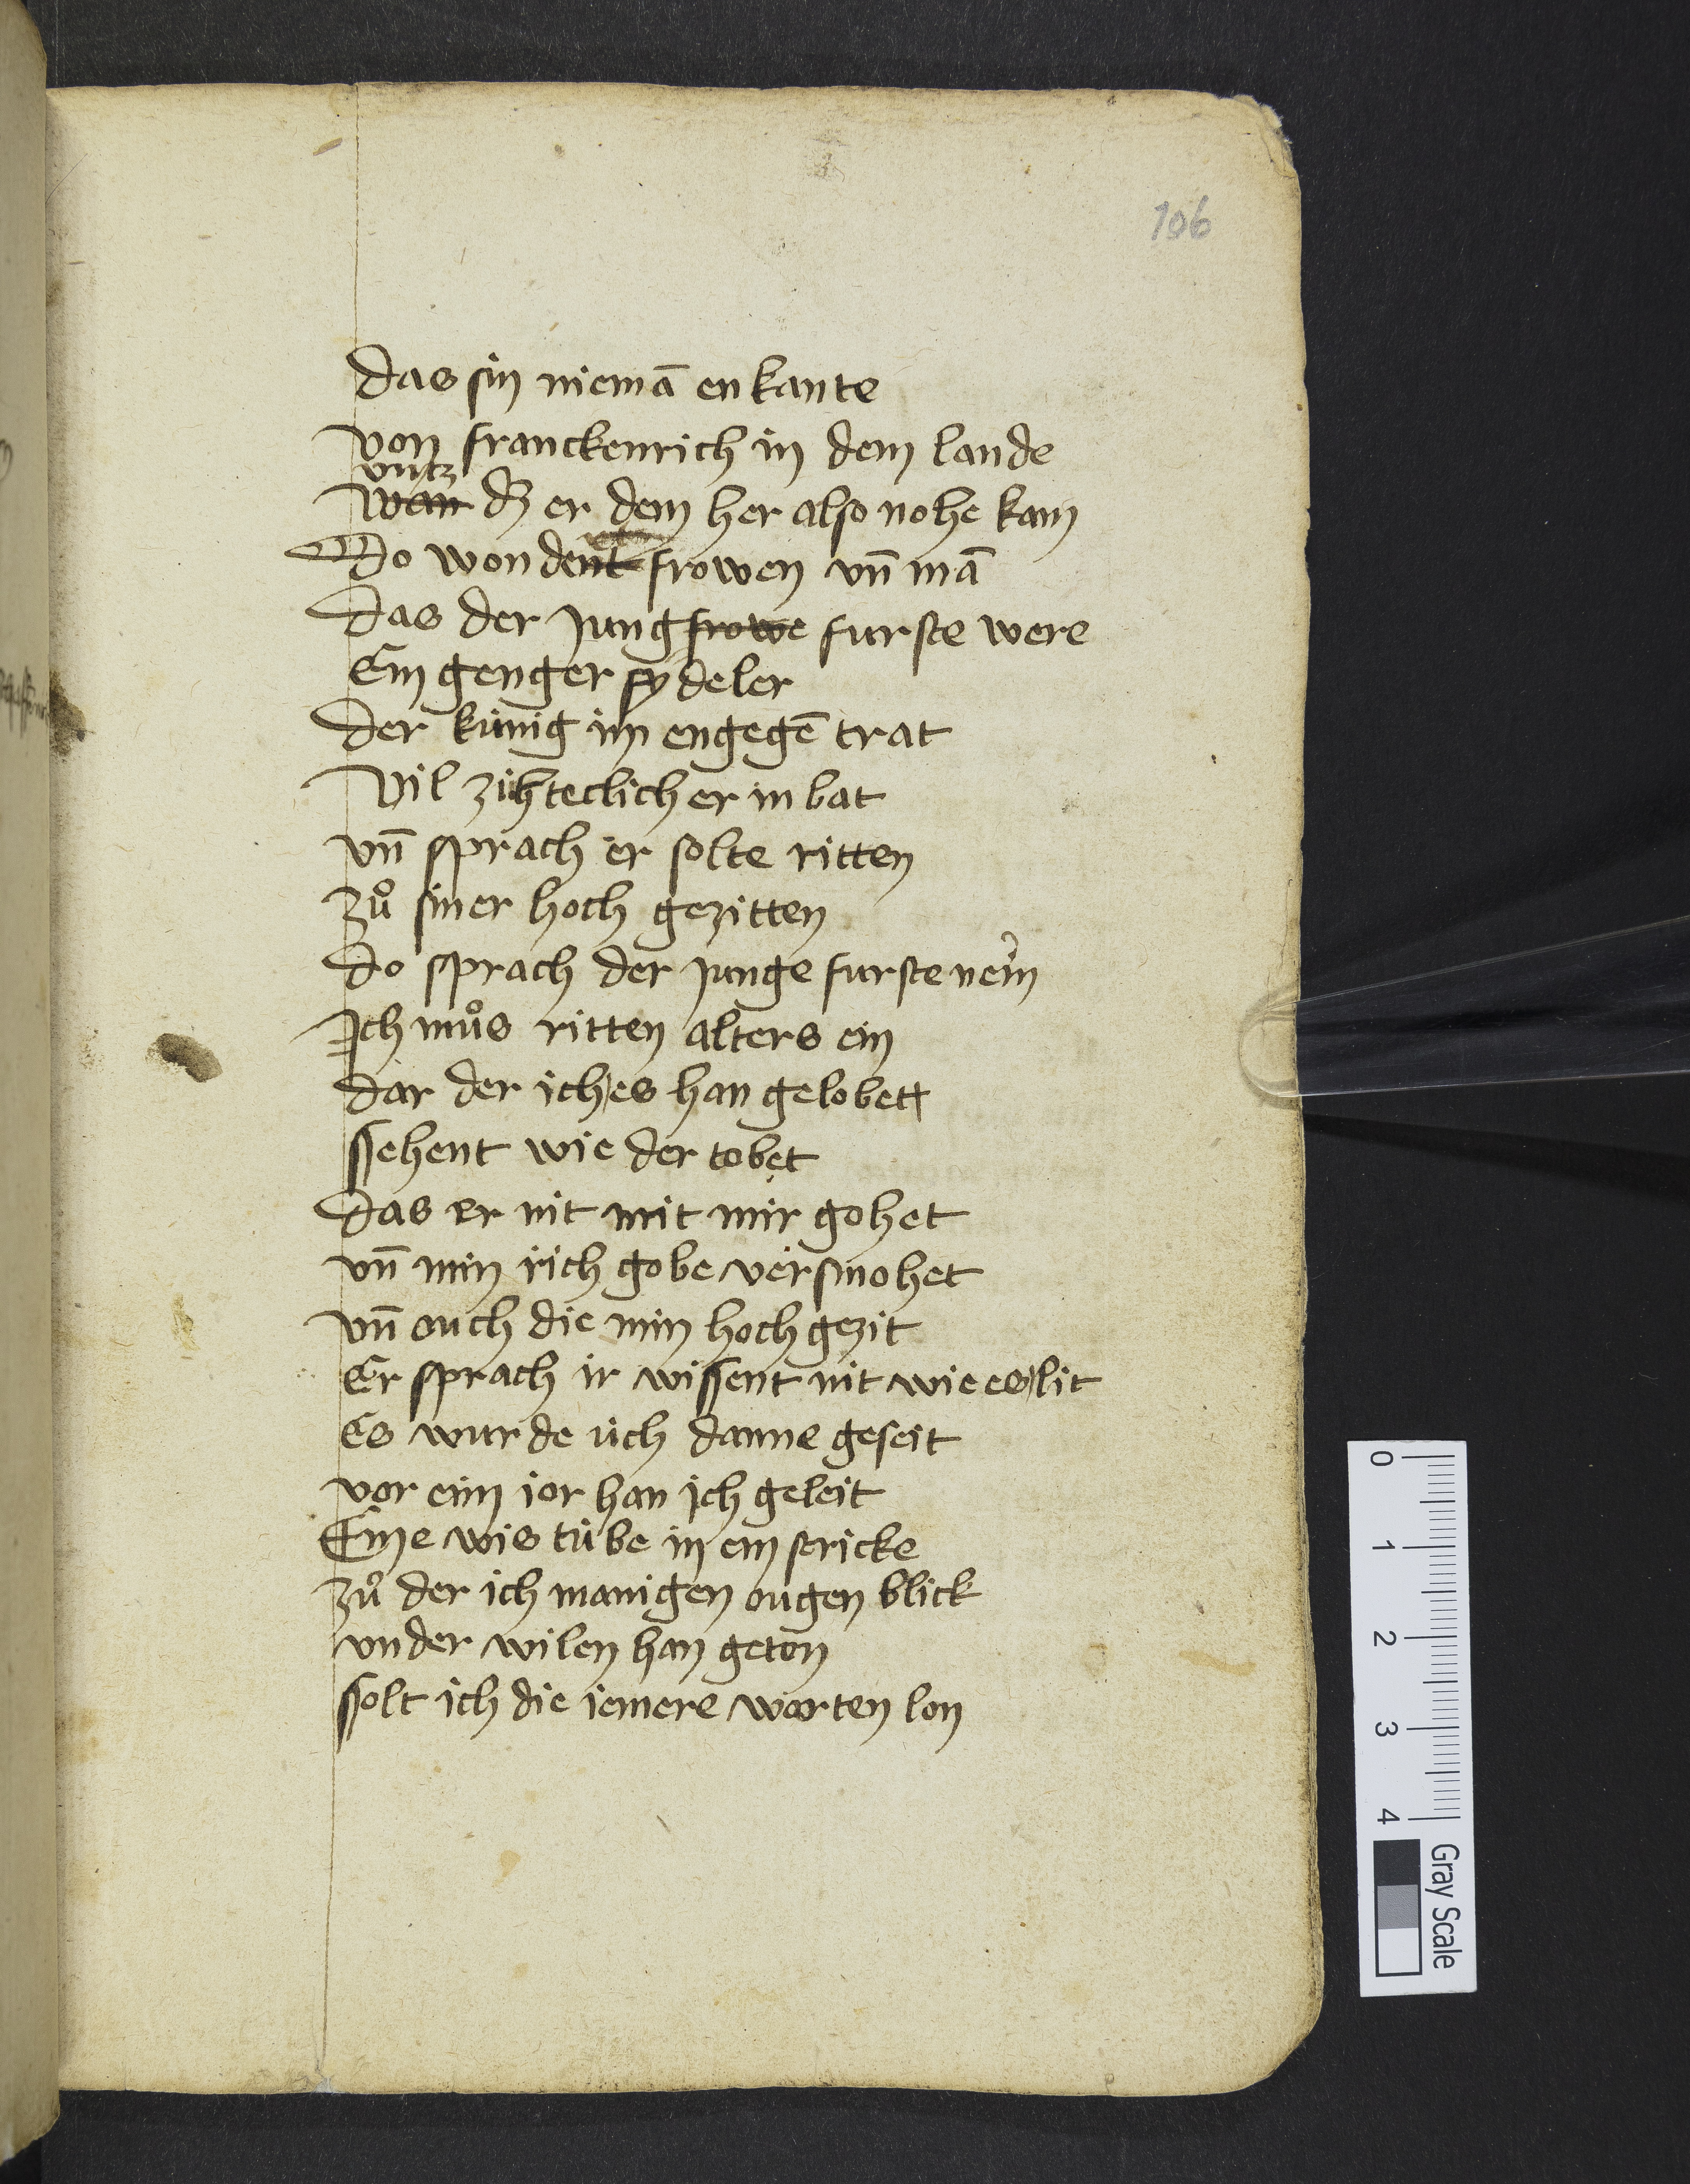 106
Das sin niemā enkante
von franckenrich in dem lande
vntz
wan dz er dem her also nohe kam
Do wondent frowen vn̄ mā
Das der jungfrowe furste were
Ein genger sydeler
Der kúnig im engegē trat
Vil zúhteclich er in bat
vn̄ sprach er solte ritten
Zuͦ siner hoch gezitten
Do sprach der junge furste nein
Ich muͦs ritten alters ein
Dar der ich es han gelobett
ssehent wie der tobet
Das er nit mit mir gohet
vn̄ min rich gobe versmohet
vn̄ ouch die min hochgezit
Er sprach ir wissent nit wie es lit
Es wurde úch danne geseit
vor eim jor han ich geleit
Eine wis túbe in ein stricke
Zuͦ der ich manigen ougen blick
vnder wilen han geton
ssolt ich die iemere warten lon
0 1 2 3 4
Gray Scale